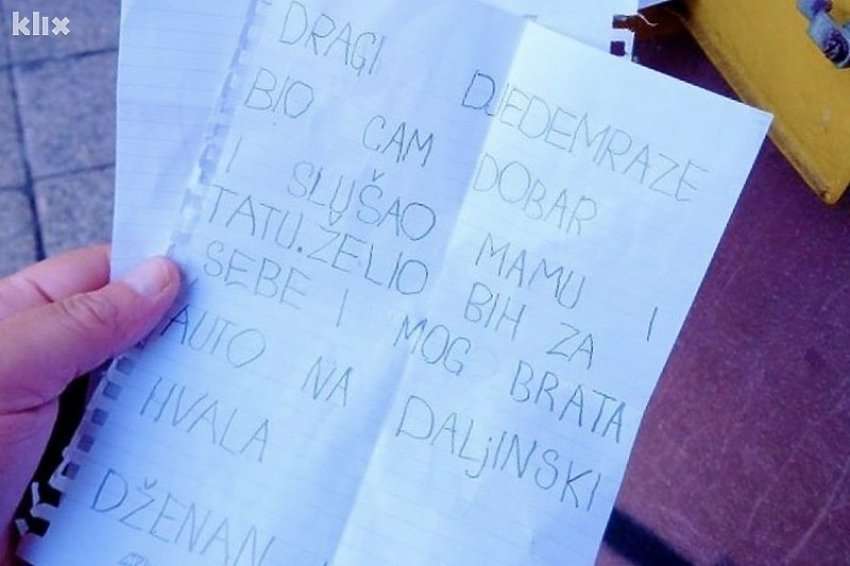 klix
DRAGI DJEDEMRAZE
BIO CAM DOBAR
I SLUŠAO MAMU I
TATU. ŽELIO BIH ZA
SEBE I MOG BRATA
AUTO NA DALjINSKI
HVALA
DŽENAN